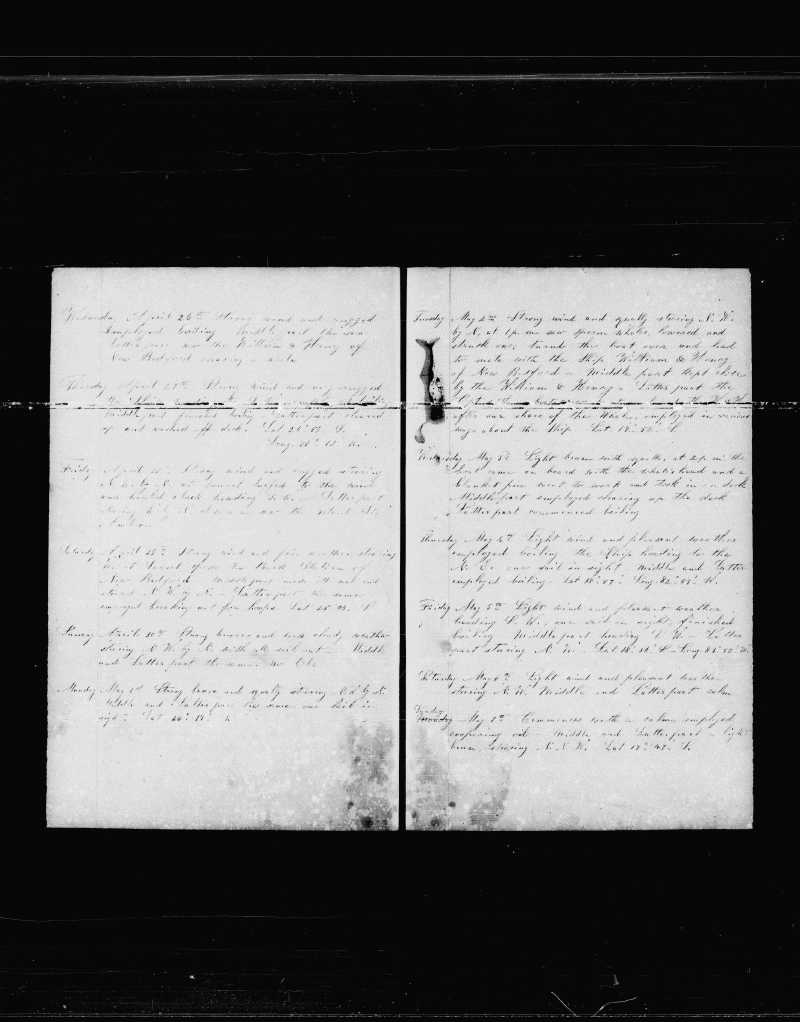 Wednesday April 26th Strong wind and rugged
employed boiling Middle part the same
Latter part saw the William & Henry of
New Bedford chasing a whale
Thursday April 27th Strong wind and very rugged
Middle part finished boiling Latter part cleared
up and washed off deck. Lat 26 S.
Long W.
Friday April 28 Strong wind and rugged steering
N. W. by N. at sunset luffed to the wind
and hauled aback heading Latter part
steering N by W saw the island
Ambrose
Saturday April 29th Strong wind and fair weather steering
at Sunset spoke the Bark of
New Bedford Middle part
steered N. W by N. Latter part the same
employed breaking out for hoops. Lat 25° 03 S
Sunday April 30th Strong breeze and cloudy weather
steering N. W. by N. with all sail out Middle
and Latter part the same no Obs.
Monday May 1st Strong breeze and squally steering N. W by N.
Middle and Latter part the same one sail in
sight Lat
Tuesday May 2nd Strong wind and squally steering N. W.
by N. at 1 p. m saw sperm whales, lowered and
struck one, turned the boat over and had
to mate with the Ship William & Henry
of New Bedford - Middle part kept close
by the William & Henry - Latter part the
after our share of the Whale, employed in various
ways about the Ship Lat 19° 52' S.
Wednesday May 3d Light breeze with squalls, at 2 p. m the
boat came on board with the whale's head and a
blanket piece went to work and took in on deck
Middle part employed clearing up the deck
Latter part commenced boiling
Thursday May 4th Light wind and pleasant weather
employed boiling the Ship heading to the
N. E. one sail in sight Middle and Latter
employed boiling Lat 18° 57' Long 82° 59' W.
Friday May 5th Light wind and pleasant weather
heading S. W., one sail in sight, finished
boiling - Middle part heading S. W - Latter
part steering N. W. Lat 18° S - Long 83° 52' W.
Saturday May 6th Light wind and pleasant weather
steering N. W. Middle and Latter part calm
Sunday
Monday May 7th Commences with a calm employed
coopering oil - Middle and Latter part a light
breeze, steering N. N. W. Lat 17° 47' S.